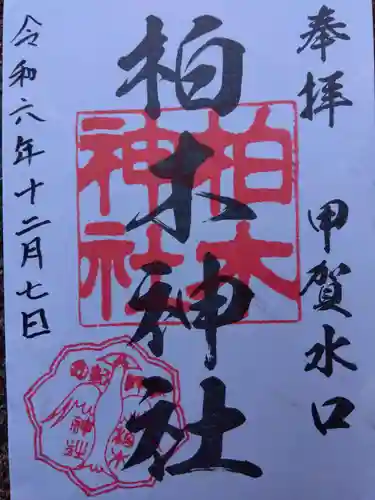 奉拝　甲賀水口
柏木神社
令和六年十二月七日
柏木
神社
柏木
神社